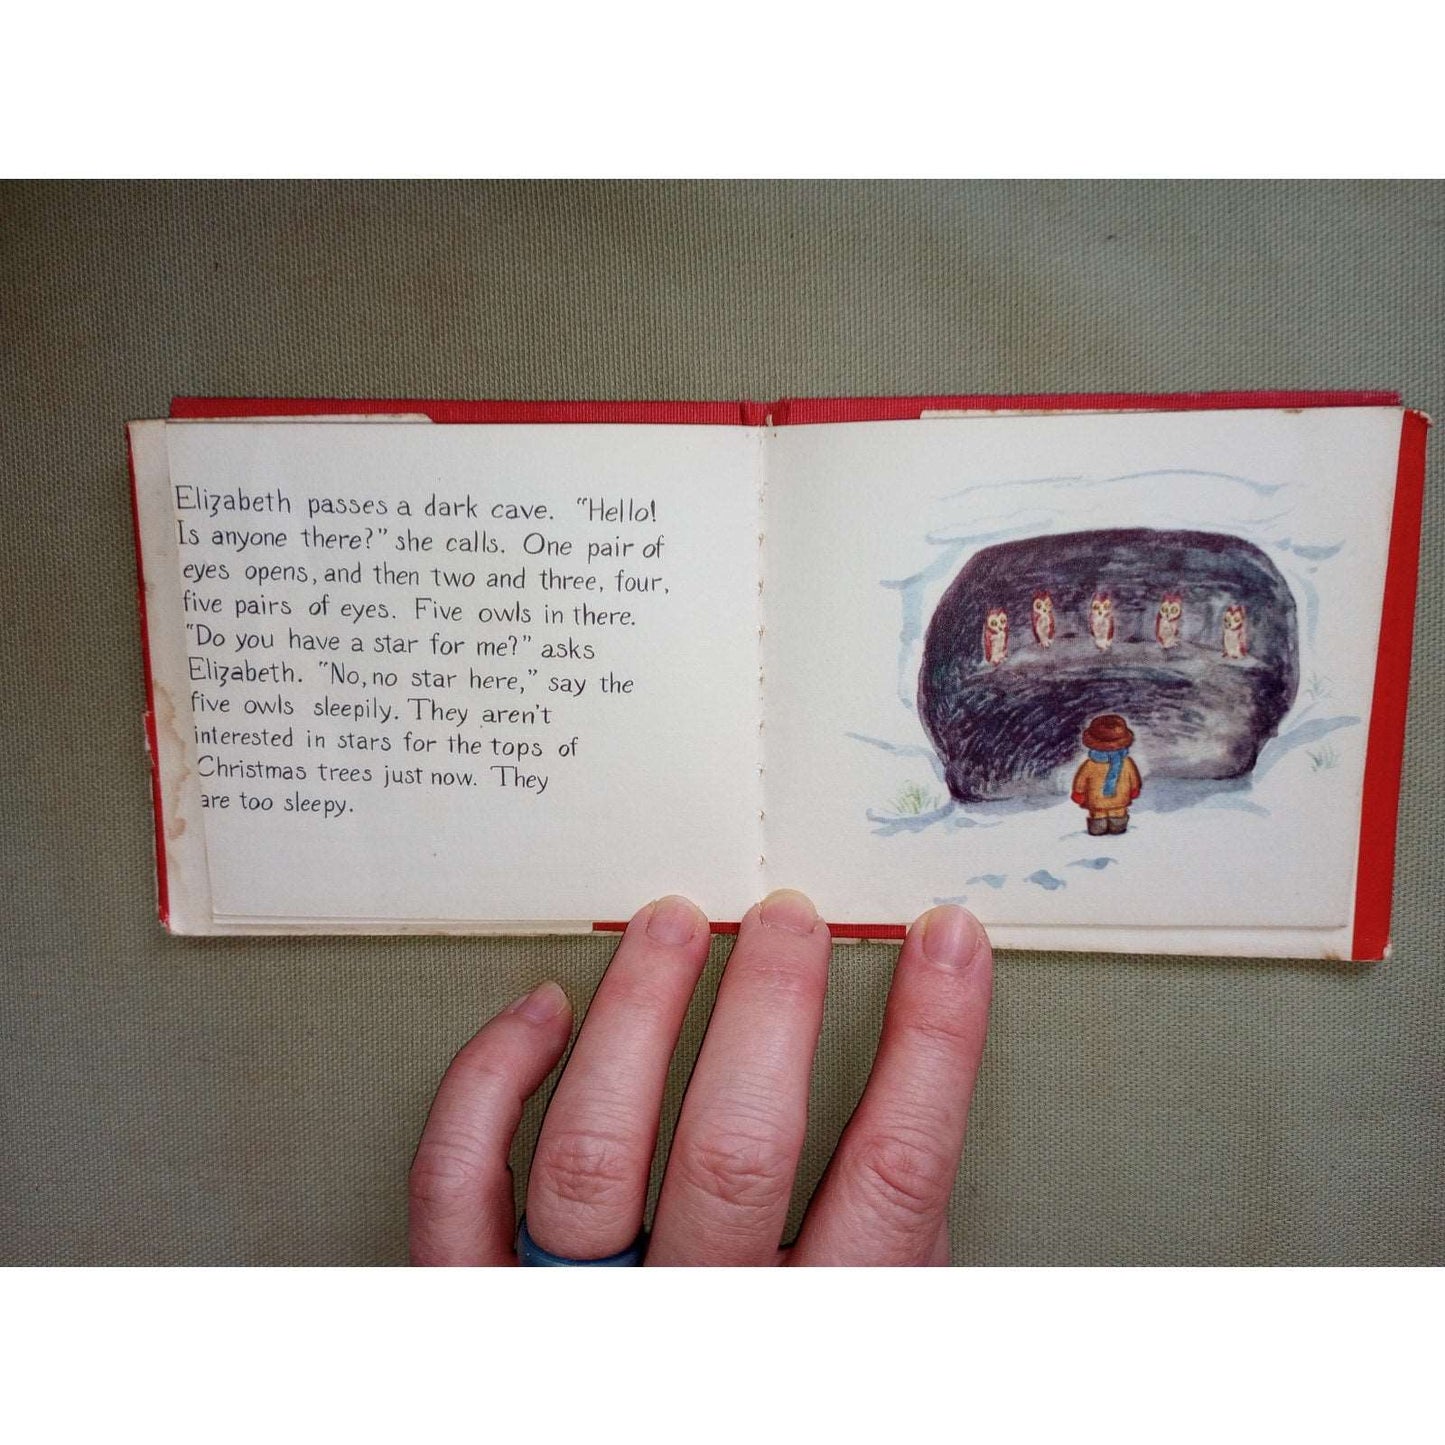 Elizabeth passes a dark cave. "Hello!
Is anyone there?" she calls. One pair of
eyes opens, and then two and three, four,
five pairs of eyes. Five owls in there.
"Do you have a star for me?" asks
Elizabeth. "No, no star here," say the
five owls sleepily. They aren't
interested in stars for the tops of
Christmas trees just now. They
are too sleepy.